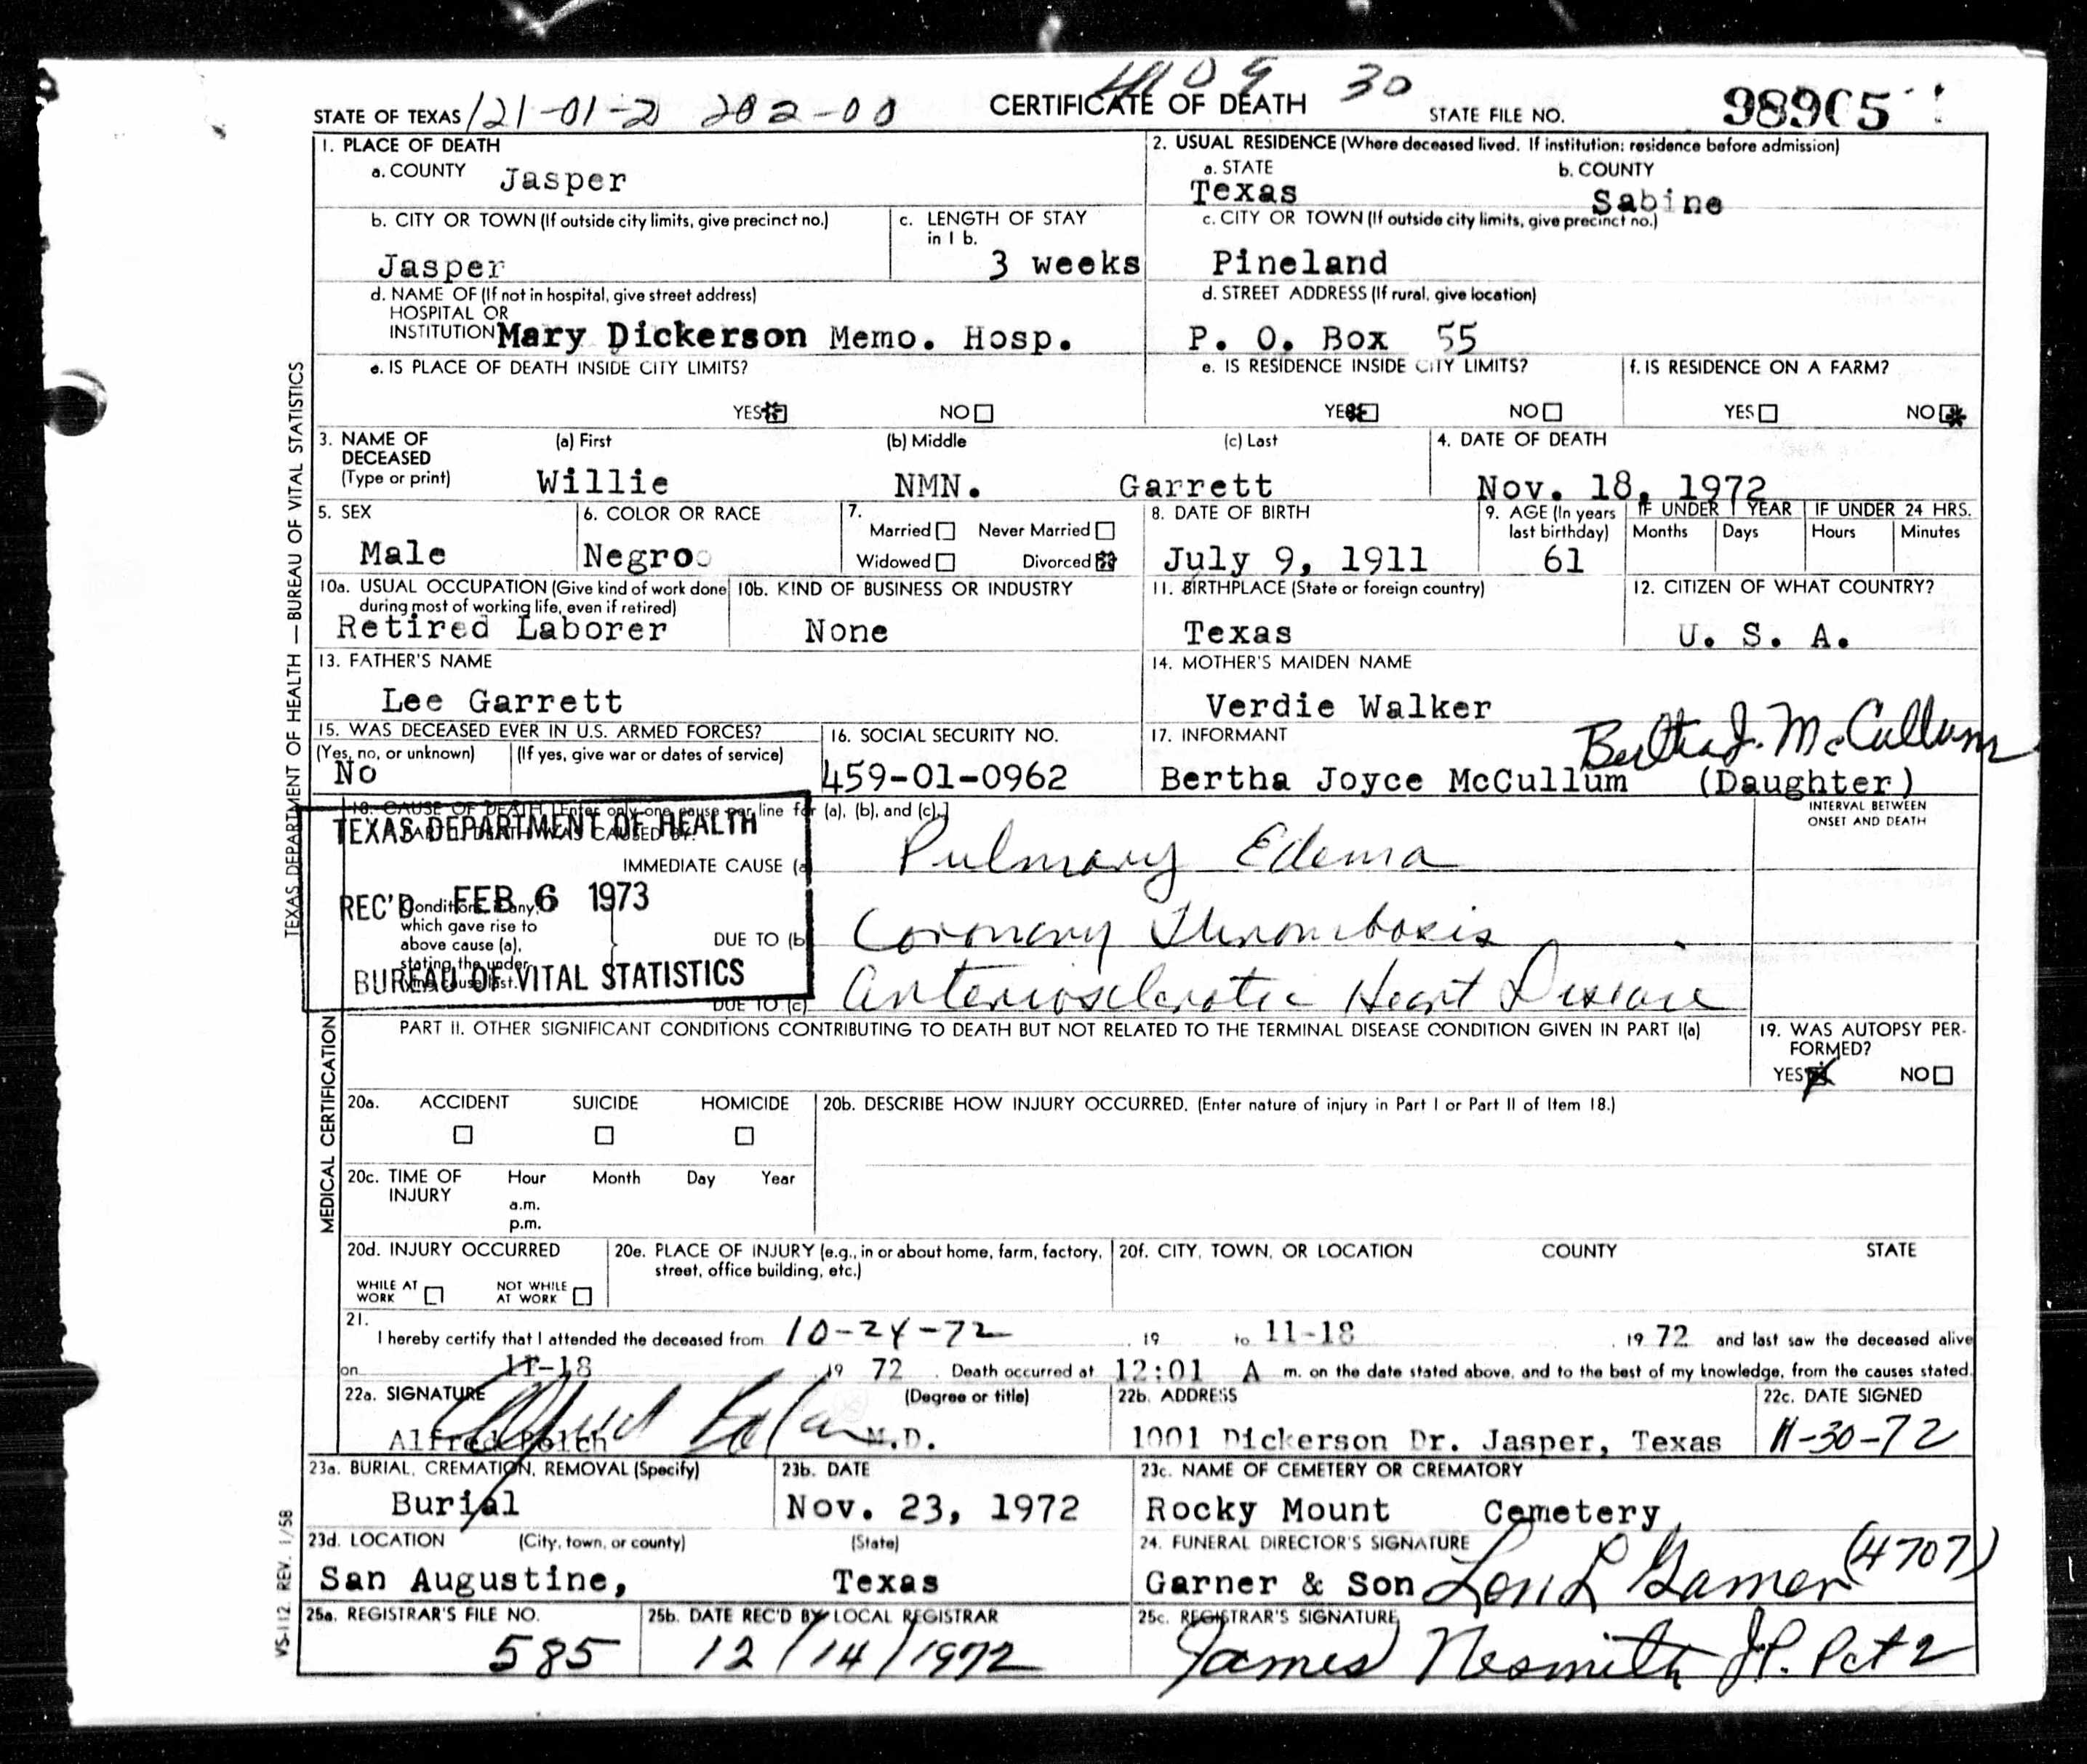 STATE OF TEXAS 121-01-2 202-00 CERTIFICATE OF DEATH 30 STATE FILE NO. 98905
1. PLACE OF DEATH
a. COUNTY Jasper
2. USUAL RESIDENCE (Where deceased lived. If institution: residence before admission)
a. STATE Texas
b. COUNTY Sabine
b. CITY OR TOWN (If outside city limits, give precinct no.)
Jasper
c. LENGTH OF STAY
in 1 b.
3 weeks
c. CITY OR TOWN (If outside city limits, give precinct no.)
Pineland
d. NAME OF (If not in hospital, give street address)
HOSPITAL OR
INSTITUTION Mary Dickerson Memo. Hosp.
d. STREET ADDRESS (If rural, give location)
P. O. Box 55
e. IS PLACE OF DEATH INSIDE CITY LIMITS?
YES NO
e. IS RESIDENCE INSIDE CITY LIMITS?
YES NO
f. IS RESIDENCE ON A FARM?
YES NO
3. NAME OF
DECEASED
(Type or print)
(a) First
Willie
(b) Middle
NMN.
(c) Last
Garrett
4. DATE OF DEATH
Nov. 18, 1972
5. SEX
Male
6. COLOR OR RACE
Negro
7.
Married Never Married
Widowed Divorced
8. DATE OF BIRTH
July 9, 1911
9. AGE (In years
last birthday)
61
IF UNDER 1 YEAR
Months Days
IF UNDER 24 HRS.
Hours Minutes
10a. USUAL OCCUPATION (Give kind of work done
during most of working life, even if retired)
Retired Laborer
10b. KIND OF BUSINESS OR INDUSTRY
None
11. BIRTHPLACE (State or foreign country)
Texas
12. CITIZEN OF WHAT COUNTRY?
U. S. A.
13. FATHER'S NAME
Lee Garrett
14. MOTHER'S MAIDEN NAME
Verdie Walker
15. WAS DECEASED EVER IN U.S. ARMED FORCES?
(Yes, no, or unknown) (If yes, give war or dates of service)
No
16. SOCIAL SECURITY NO.
459-01-0962
17. INFORMANT
Bertha J. McCullum
Bertha Joyce McCullum (Daughter)
18. CAUSE OF DEATH [Enter only one cause per line for (a), (b), and (c).]
INTERVAL BETWEEN
ONSET AND DEATH
TEXAS DEPARTMENT OF HEALTH
REC'D FEB 6 1973
BUREAU OF VITAL STATISTICS
IMMEDIATE CAUSE (a) Pulmonary Edema
Conditions, if any,
which gave rise to
above cause (a),
stating the under-
lying cause last.
DUE TO (b) Coronary Thrombosis
DUE TO (c) Arteriosclerotic Heart Disease
PART II. OTHER SIGNIFICANT CONDITIONS CONTRIBUTING TO DEATH BUT NOT RELATED TO THE TERMINAL DISEASE CONDITION GIVEN IN PART I(a)
19. WAS AUTOPSY PER-
FORMED?
YES NO
20a. ACCIDENT SUICIDE HOMICIDE
20b. DESCRIBE HOW INJURY OCCURRED. (Enter nature of injury in Part I or Part II of Item 18.)
20c. TIME OF
INJURY
Hour Month Day Year
a.m.
p.m.
20d. INJURY OCCURRED
WHILE AT
WORK
NOT WHILE
AT WORK
20e. PLACE OF INJURY (e.g., in or about home, farm, factory,
street, office building, etc.)
20f. CITY, TOWN, OR LOCATION COUNTY STATE
21.
I hereby certify that I attended the deceased from 10-24-72, 19 to 11-18, 1972 and last saw the deceased alive
on 11-18 19 72. Death occurred at 12:01 A m. on the date stated above, and to the best of my knowledge, from the causes stated.
22a. SIGNATURE (Degree or title)
Alfred M.D.
22b. ADDRESS
1001 Dickerson Dr. Jasper, Texas
22c. DATE SIGNED
11-30-72
23a. BURIAL, CREMATION, REMOVAL (Specify)
Burial
23b. DATE
Nov. 23, 1972
23c. NAME OF CEMETERY OR CREMATORY
Rocky Mount Cemetery
23d. LOCATION (City, town, or county) (State)
San Augustine, Texas
24. FUNERAL DIRECTOR'S SIGNATURE
Garner & Son L Garner (4707)
25a. REGISTRAR'S FILE NO.
585
25b. DATE REC'D BY LOCAL REGISTRAR
12/14/1972
25c. REGISTRAR'S SIGNATURE
James Nesmith J.P. Pct 2
TEXAS DEPARTMENT OF HEALTH — BUREAU OF VITAL STATISTICS
MEDICAL CERTIFICATION
VS-112 REV. 1/58